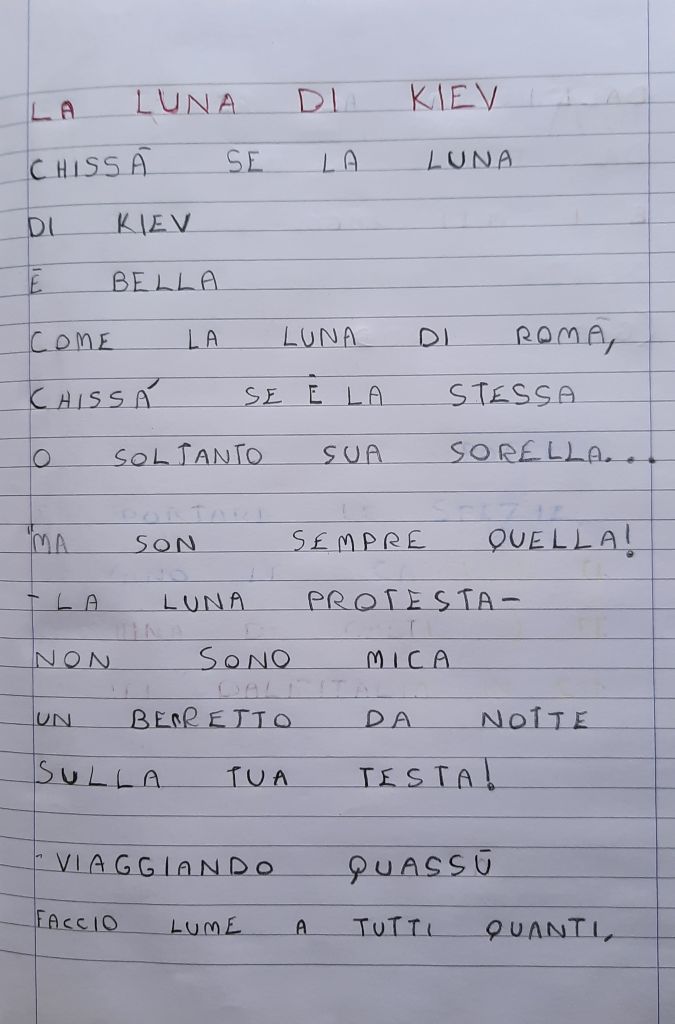 LA LUNA DI KIEV
CHISSĀ SE LA LUNA
DI KIEV
Ē BELLA
COME LA LUNA DI ROMA,
CHISSÁ SE Ē LA STESSA
O SOLTANTO SUA SORELLA...
"MA SON SEMPRE QUELLA!
- LA LUNA PROTESTA-
NON SONO MICA
UN BERRETTO DA NOTTE
SULLA TUA TESTA!
-VIAGGIANDO QUASSŪ
FACCIO LUME A TUTTI QUANTI,